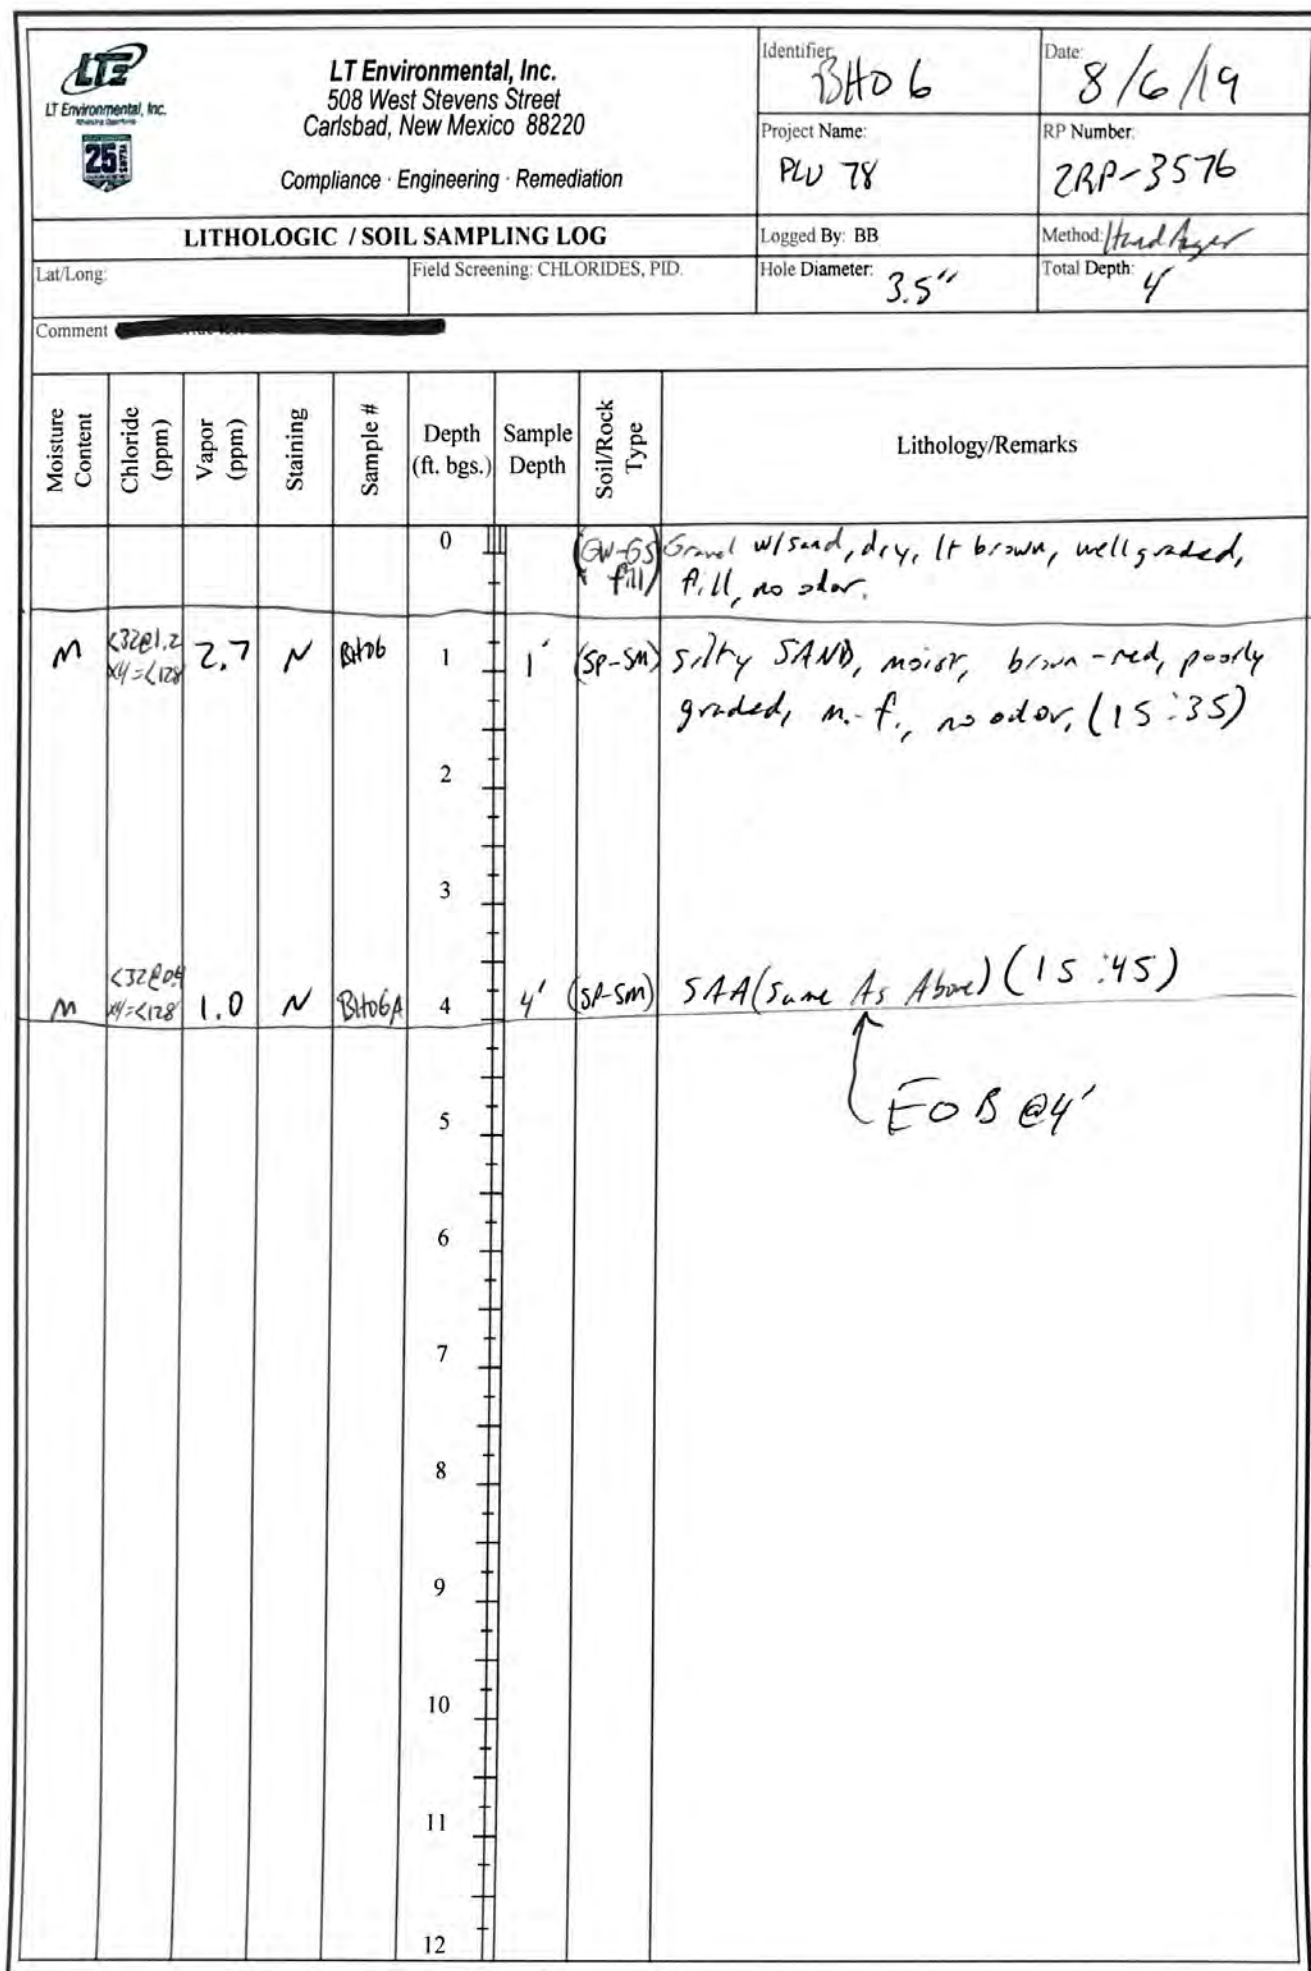 LTE
LT Environmental, Inc.
25
LT Environmental, Inc.
508 West Stevens Street
Carlsbad, New Mexico 88220
Compliance · Engineering · Remediation
Identifier: BH06
Date: 8/6/19
Project Name: PLU 78
RP Number: 2RP-3576
LITHOLOGIC / SOIL SAMPLING LOG
Logged By: BB
Method: Hand Auger
Lat/Long:
Field Screening: CHLORIDES, PID.
Hole Diameter: 3.5"
Total Depth: 4'
Comment
Moisture Content
Chloride (ppm)
Vapor (ppm)
Staining
Sample #
Depth (ft. bgs.)
Sample Depth
Soil/Rock Type
Lithology/Remarks
0 (GW-GS fill) Gravel w/sand, dry, lt brown, well graded,
fill, no odor.
M <32@1.2 x4=<128 2.7 N BH06 1 1' (SP-SM) Silty SAND, moist, brown-red, poorly
graded, m.-f., no odor, (15:35)
2
3
M <32@0.4 x4=<128 1.0 N BH06A 4 4' (SP-SM) SAA (Same As Above) (15:45)
EOB @4'
5
6
7
8
9
10
11
12